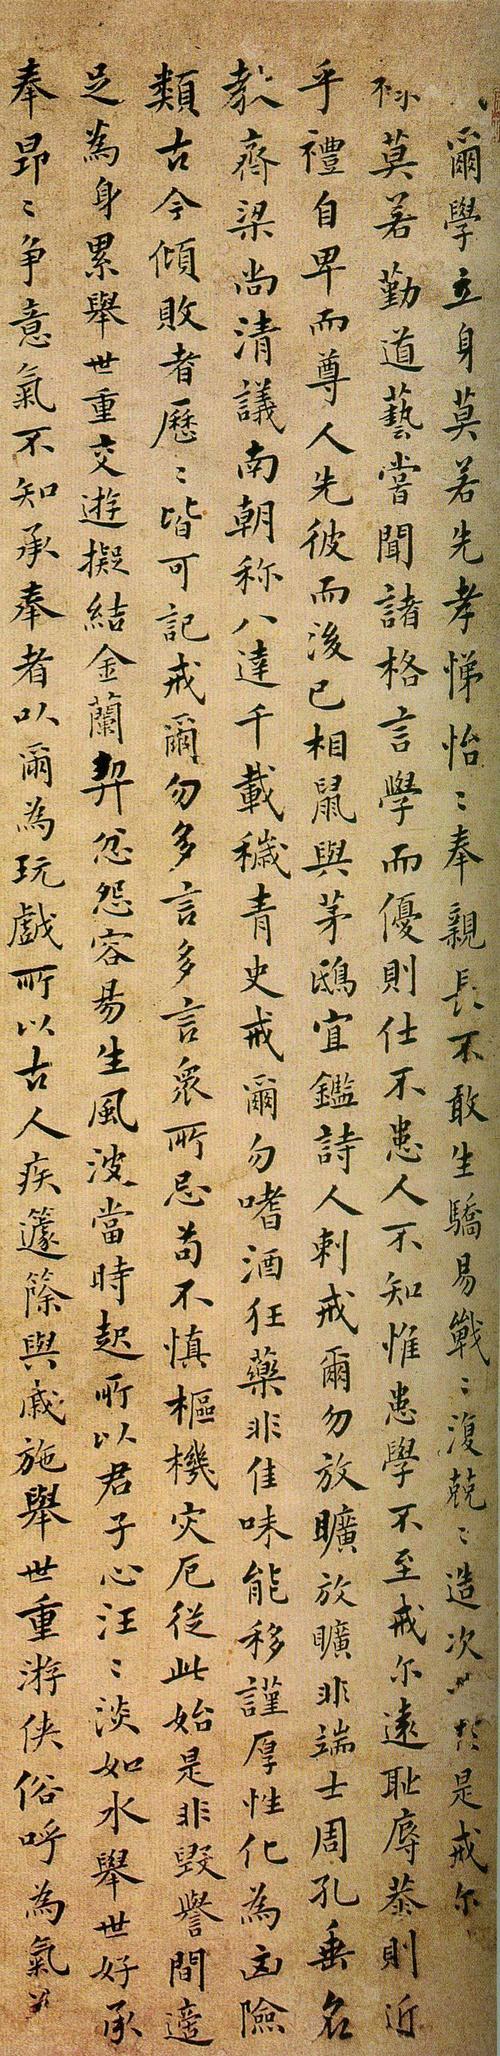 爾學立身莫若先孝悌怡〻奉親長不敢生驕易戰〻復兢〻造次於是戒尔
莫若勤道藝嘗聞諸格言學而優則仕不患人不知惟患學不至戒尔遠恥辱恭則近
乎禮自卑而尊人先彼而後己相鼠與茅鴟宜鑑詩人刺戒爾勿放曠放曠非端士周孔垂名
教齊梁尚清議南朝称八達千載穢青史戒爾勿嗜酒狂藥非佳味能移謹厚性化為凶險
類古今傾敗者歷〻皆可記戒爾勿多言多言衆所忌苟不慎樞機灾厄從此始是非毀譽間適
足為身累舉世重交遊擬結金蘭契忿怨容易生風波當時起所以君子心汪〻淡如水舉世好承
奉昂〻爭意氣不知承奉者以爾為玩戲所以古人疾籧篨與戚施舉世重游俠俗呼為氣